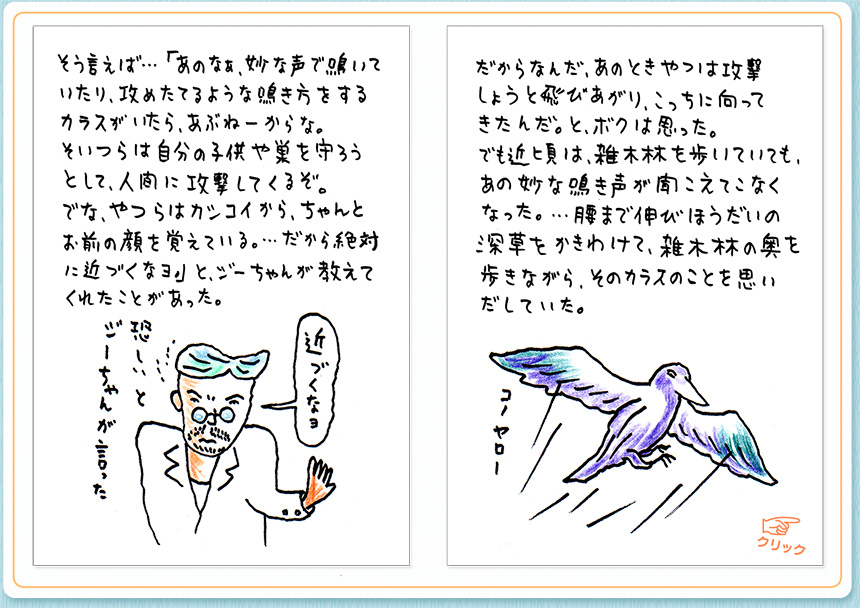 そう言えば…「あのなぁ、妙な声で鳴いて
いたり、攻めたてるような鳴き方をする
カラスがいたら、あぶねーからな。
そいつらは自分の子供や巣を守ろう
として、人間に攻撃してくるぞ。
でな、やつらはカシコイから、ちゃんと
お前の顔を覚えている。…だから絶対
に近づくなヨ。」と、ジーちゃんが教えて
くれたことがあった。
近づくなョ
恐しいと
ジーちゃんが言った
だからなんだ、あのときやつは攻撃
しようと飛びあがり、こっちに向って
きたんだ。と、ボクは思った。
でも近頃は、雑木林を歩いていても、
あの妙な鳴き声が聞こえてこなく
なった。…腰まで伸びほうだいの
深草をかきわけて、雑木林の奥を
歩きながら、そのカラスのことを思い
だしていた。
コノヤロー
クリック